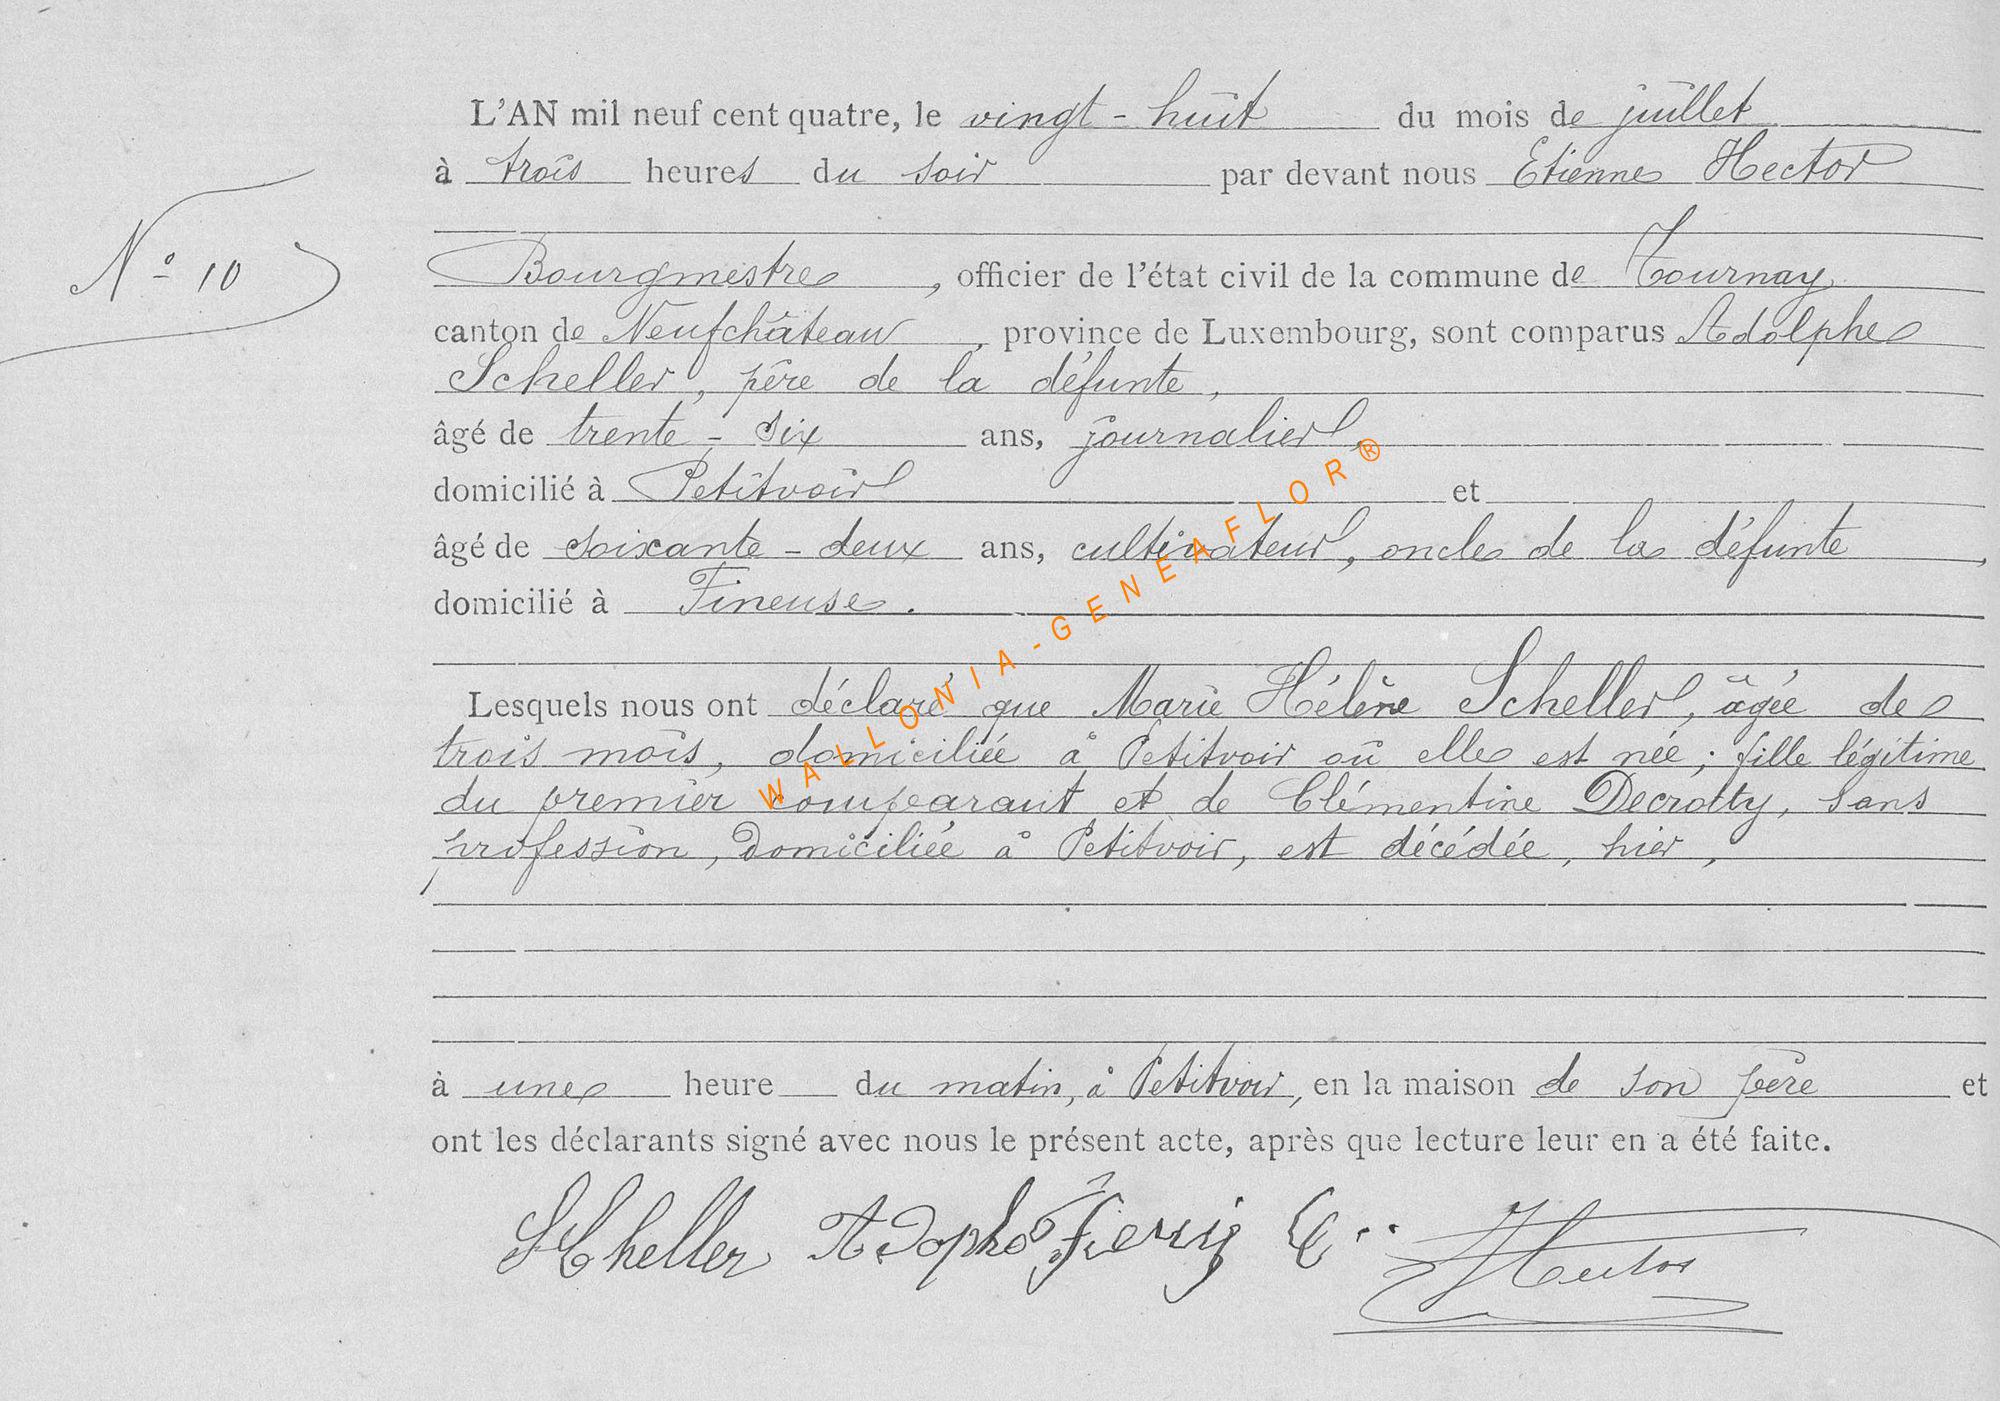 L'AN mil neuf cent quatre, le vingt-huit du mois de juillet
à trois heures du soir par devant nous Etienne Hector
N° 10
Bourgmestre, officier de l'état civil de la commune de Tournay
canton de Neufchâteau, province de Luxembourg, sont comparus Adolphe
Scheller, père de la défunte,
âgé de trente-six ans, journalier,
domicilié à Petitvoir et
âgé de soixante-deux ans, cultivateur, oncle de la défunte,
domicilié à Tineuse.
Lesquels nous ont déclaré que Marie Hélène Scheller, âgée de
trois mois, domiciliée à Petitvoir où elle est née; fille légitime
du premier comparant et de Clémentine Decrotty, sans
profession, domiciliée à Petitvoir, est décédée, hier,
à une heure du matin, à Petitvoir, en la maison de son père et
ont les déclarants signé avec nous le présent acte, après que lecture leur en a été faite.
SCheller Adophe
WALLONIA-GENEAFLOR®